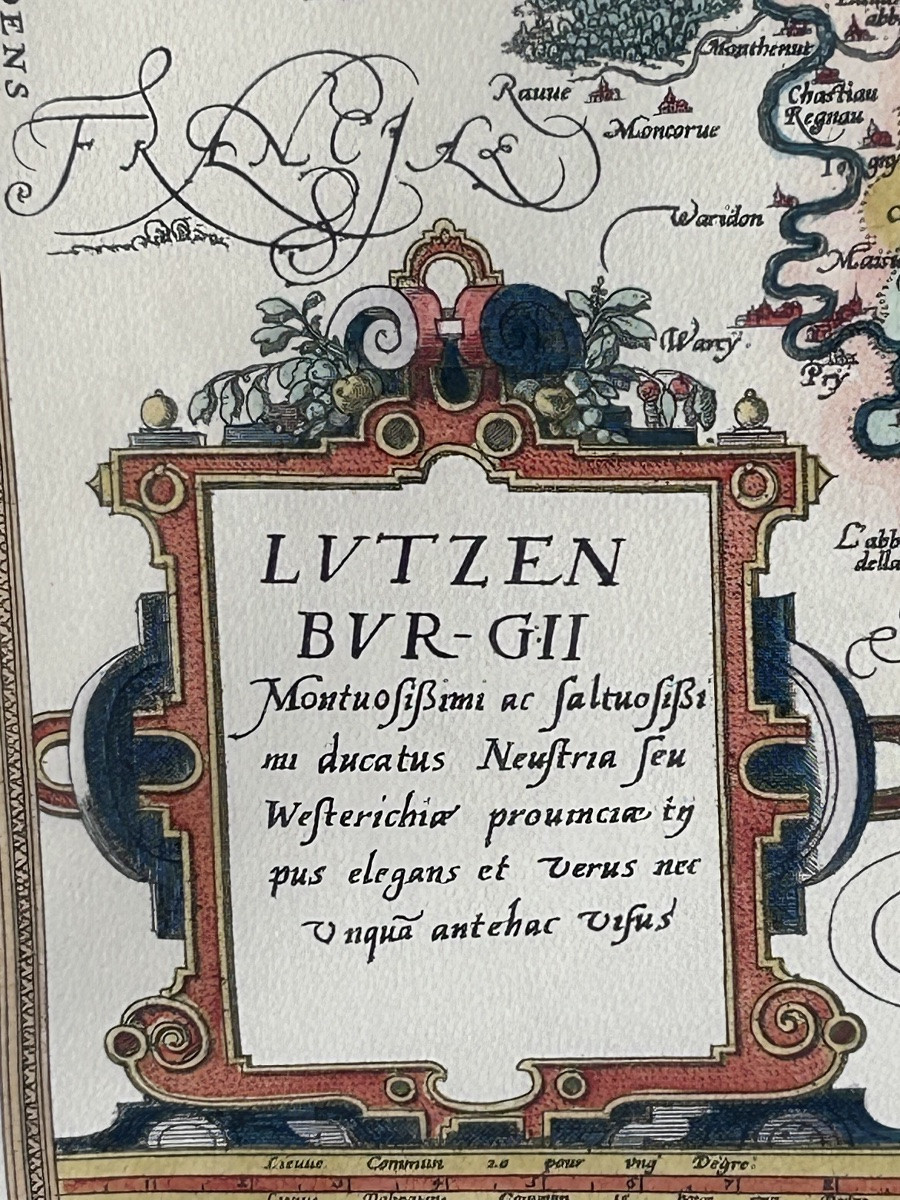 DENS
FRENCIAE
Monthenut
Rauue
Moncorue
Chastiau
Regnau
Waridon
Warcy.
Pry
L'abb
della
LVTZEN
BVR-G·II
Montuoſißimi ac ſaltuoſißi
mi ducatus Neuſtria ſeu
Weſterichiæ prouinciæ tÿ
pus elegans et verus nec
vnquã antehac viſus
Lieuue Commun 20 pour vng Degre:
1 2 3 4 5 6 7 8